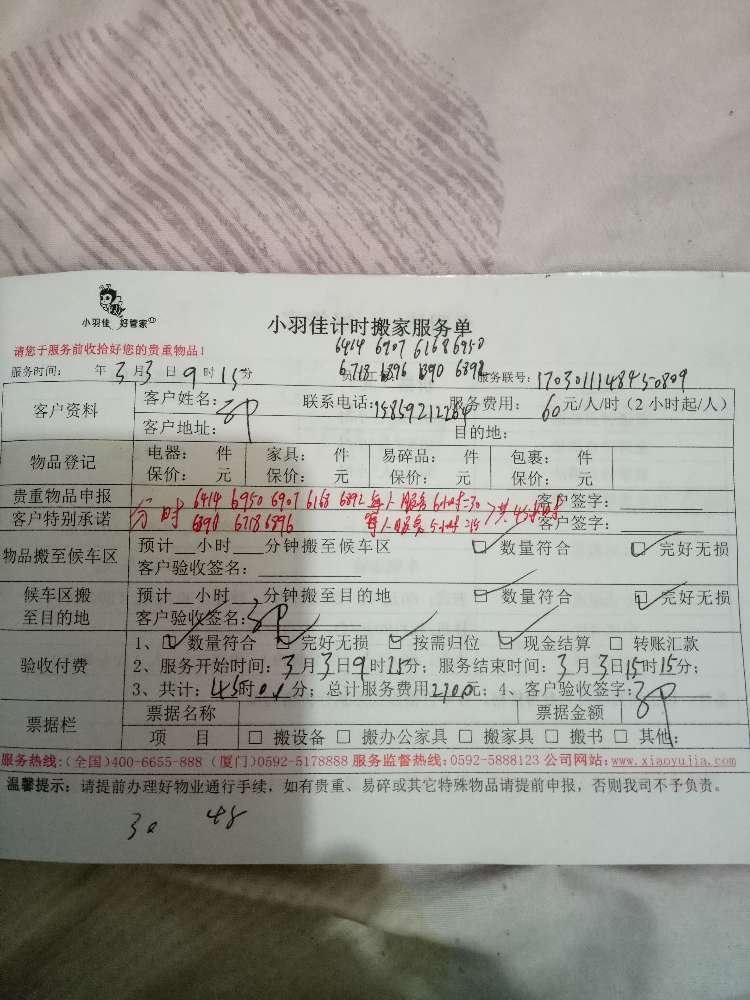 小羽佳 好管家
小羽佳计时搬家服务单
请您于服务前收拾好您的贵重物品！
6414 6907 6168 6950
服务时间： 年3月3日9时15分 员工 6718 6896 6890 6892 服务联号：1703011148450809
客户资料 客户姓名： 联系电话：15859212264 服务费用：60元/人/时（2小时起/人）
客户地址： 目的地：
物品登记 电器： 件 家具： 件 易碎品： 件 包裹： 件
保价： 元 保价： 元 保价： 元 保价： 元
贵重物品申报 6414 6950 6907 6168 6892 每人服务6小时=30 客户签字：
客户特别承诺 分时 6890 6718 6896 每人服务5小时=15 共45小时 客户签字：
物品搬至候车区 预计__小时__分钟搬至候车区 ☑ 数量符合 ☑ 完好无损
客户验收签名：
候车区搬至目的地 预计__小时__分钟搬至目的地 ☑ 数量符合 ☑ 完好无损
客户验收签名：
验收付费 1、☑ 数量符合 ☑ 完好无损 ☑ 按需归位 ☑ 现金结算 □ 转账汇款
2、服务开始时间：3月3日9时15分；服务结束时间：3月3日15时15分；
3、共计：45时0分；总计服务费用2700元；4、客户验收签字：
票据栏 票据名称 票据金额
项 目 □ 搬设备 □ 搬办公家具 □ 搬家具 □ 搬书 □ 其他：
服务热线：(全国)400-6655-888 (厦门)0592-5178888 服务监督热线：0592-5888123 公司网站：www.xiaoyujia.com
温馨提示：请提前办理好物业通行手续，如有贵重、易碎或其它特殊物品请提前申报，否则我司不予负责。
30 48